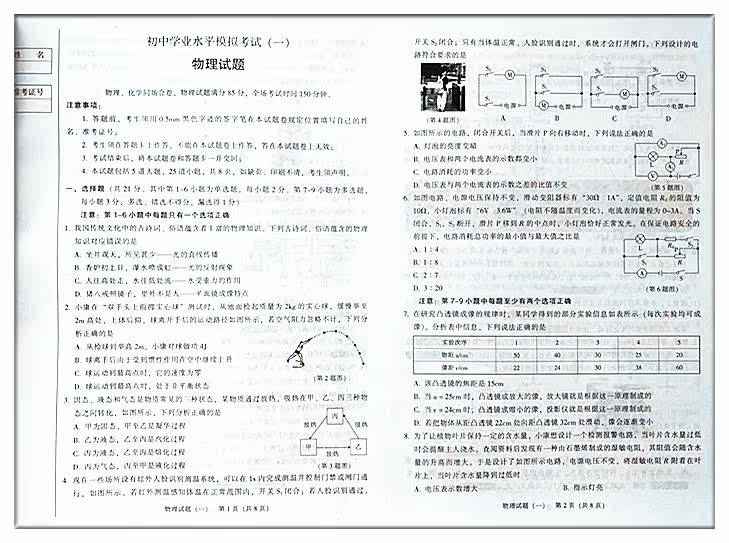 姓 名
准考证号
初中学业水平模拟考试（一）
物理试题
物理、化学同场合卷，物理试题满分85分，全场考试时间150分钟。
注意事项：
1. 答题前，考生须用0.5mm黑色字迹的签字笔在本试题卷规定位置填写自己的姓
名、准考证号；
2. 考生须在答题卡上作答，不能在本试题卷上作答，答在本试题卷上无效；
3. 考试结束后，将本试题卷和答题卡一并交回；
4. 本试题卷包括5道大题，25道小题，共8页，如缺页、印刷不清，考生须声明。
一、选择题（共21分，其中第1-6小题为单选题，每小题2分，第7-9小题为多选题，
每小题3分，多选、错选不得分，漏选得1分）
注意：第1-6小题中每题只有一个选项正确
1. 我国传统文化中的古诗词、俗语蕴含着丰富的物理知识。下列古诗词、俗语蕴含的物理
知识对应错误的是
A. 坐井观天，所见甚少——光的直线传播
B. 香炉初上日，瀑水喷成虹——光的反射现象
C. 人往高处走，水往低处流——水受重力的作用
D. 猪八戒照镜子，里外不是人——平面镜成像特点
2. 小康在“双手头上前掷实心球”测试时，从地面捡起质量为2kg的实心球，缓慢举至
2m高处，上体后仰，球离开手后的运动路径如图所示，若空气阻力忽略不计，下列分
析正确的是
A. 从捡球到举高2m，小康对球做功4J
B. 球离手后由于受到惯性作用在空中继续上升
C. 球运动到最高点时，它的速度为零
D. 球运动到最高点时，处于非平衡状态
（第2题图）
3. 固态、液态和气态是物质常见的三种状态，某物质通过放热、吸热在甲、乙、丙三种物
态之间转化，如图所示，下列分析正确的是
A. 甲为固态，甲至乙是凝华过程
B. 乙为液态，乙至丙是汽化过程
C. 乙为固态，乙至丙是升华过程
D. 丙为气态，丙至甲是液化过程
丙
放热
吸热
甲
乙
放热
（第3题图）
4. 现在一些场所设有红外人脸识别测温系统，可以在1s内完成测温并控制门禁或闸门通
行，如图所示，若红外测温感知体温在正常范围内，开关S₁闭合；若人脸识别通过，
物理试题（一） 第1页（共8页）
开关S₂闭合；只有当体温正常、人脸识别通过时，系统才会打开闸门。下列设计的电
路符合要求的是
（第4题图）
A
B
C
D
5. 如图所示的电路，闭合开关后，当滑片P向右移动时，下列说法正确的是
A. 灯泡的亮度变暗
B. 电压表和两个电流表的示数都变小
C. 电路消耗的功率变小
D. 电压表与两个电流表的示数之差的比值不变
（第5题图）
6. 如图电路，电源电压保持不变，滑动变阻器标有“30Ω 1A”，定值电阻R₀的阻值为
10Ω，小灯泡标有“6V 3.6W”（电阻不随温度而变化），电流表的量程为0~3A。当S
闭合，S₁、S₂断开，滑片P移到R的中点时，小灯泡恰好正常发光，在保证电路安全的
前提下，电路消耗总功率的最小值与最大值之比是
A. 1：4
B. 1：8
C. 2：7
D. 3：20
（第6题图）
注意：第7-9小题中每题至少有两个选项正确
7. 在研究凸透镜成像的规律时，某同学得到的部分实验信息如表所示（每次实验均可成
像），分析表中信息，下列说法正确的是
实验次序 1 2 3 4 5
物距u/cm 50 40 30 25 20
像距v/cm 22 24 30 38 60
A. 该凸透镜的焦距是15cm
B. 当u=25cm时，凸透镜成放大的像，放大镜就是根据这一原理制成的
C. 当v=24cm时，凸透镜成缩小的像，投影仪就是根据这一原理制成的
D. 若把物体从距凸透镜22cm处向距凸透镜32cm处滑动，像会逐渐变小
8. 为了让植物叶片保持一定的含水量，小康想设计一个检测报警电路，当叶片含水量过低
时会提醒主人浇水。查阅资料后发现有一种由石墨烯材料制成的湿敏电阻，其阻值会随含水
量的升高而增大。于是设计了如图所示电路，电源电压不变，将湿敏电阻R附着在叶
片上，当叶片含水量降到过低时
A. 电压表示数增大
B. 指示灯亮
物理试题（一） 第2页（共8页）